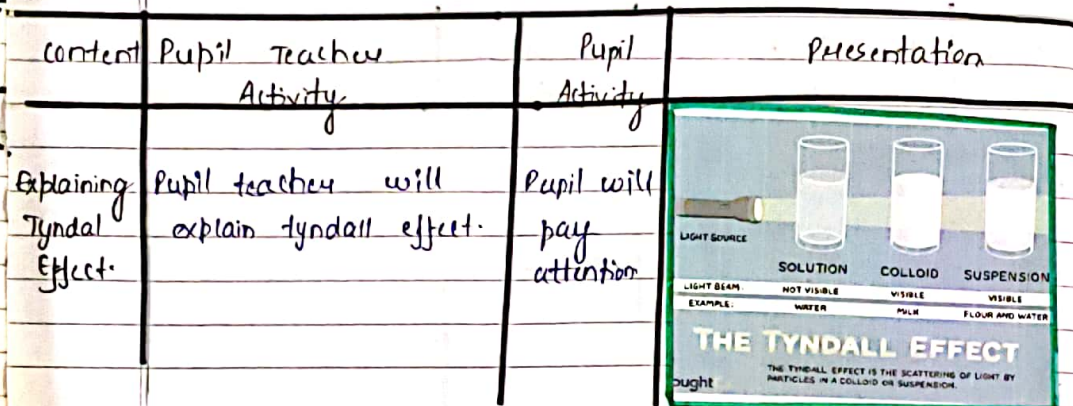 Content Pupil Teacher Activity Pupil Activity Presentation
Explaining Tyndal Effect.
Pupil teacher will
explain tyndall effect.
Pupil will
pay
attention
LIGHT SOURCE
SOLUTION COLLOID SUSPENSION
LIGHT BEAM: NOT VISIBLE VISIBLE VISIBLE
EXAMPLE: WATER MILK FLOUR AND WATER
THE TYNDALL EFFECT
THE TYNDALL EFFECT IS THE SCATTERING OF LIGHT BY
PARTICLES IN A COLLOID OR SUSPENSION.
ought